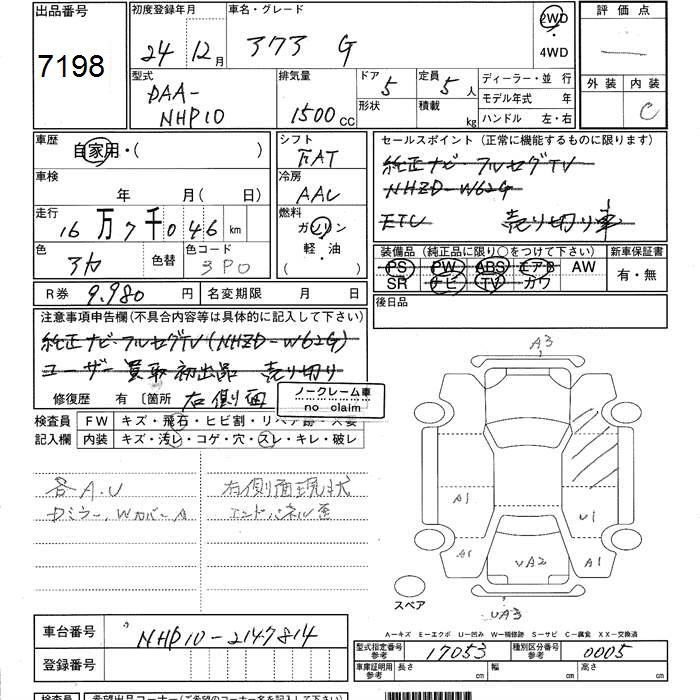 出品番号 7198
初度登録年月 24年 12月
車名・グレード 373 G
2WD ・ 4WD
評価点 —
外装 内装 C
型式 DAA-NHP10
排気量 1500cc
ドア 5 形状
定員 5人 積載 kg
ディーラー・並行
モデル年式 年
ハンドル 左・右
車歴 自家用・( )
シフト FAT
セールスポイント (正常に機能するものに限ります)
純正ナビ・フルセグTV
NHZD-W62G
ETC 売り切り車
車検 年 月( 日)
冷房 AAC
走行 16万7千046km
燃料 ガソリン 軽・油 ( )
色 アカ 色替
色コード 3P0
装備品 (純正品に限り○をつけて下さい)
PS PW ABS エアB AW
SR ナビ TV カワ
新車保証書 有・無
R券 9.980円 名変期限 月 日
後日品
注意事項申告欄(不具合内容等は具体的に記入して下さい)
純正ナビ・フルセグTV(NHZD-W62G)
ユーザー買取初出品 売り切り
修復歴 有 〔箇所 右側面
ノークレーム車
no claim
検査員 FW キズ・飛石・ヒビ割・リペア跡・大要
記入欄 内装 キズ・汚レ・コゲ・穴・スレ・キレ・破レ
各A.U 右側面現状
Dミラー、WカバーA エンドパネル歪
A3
A1
U1
A1
UA2
A1
UA3
スペア
A−キズ E−エクボ U−凹み W−補修跡 S−サビ C−腐食 XX−交換済
車台番号 NHP10-2147814
登録番号
型式指定番号 参考 17053 種別区分番号 参考 0005
車庫証明用 参考 長さ cm 幅 cm 高さ cm
検査員 希望出品コーナー(ご希望のコーナー名を記入して下さい)